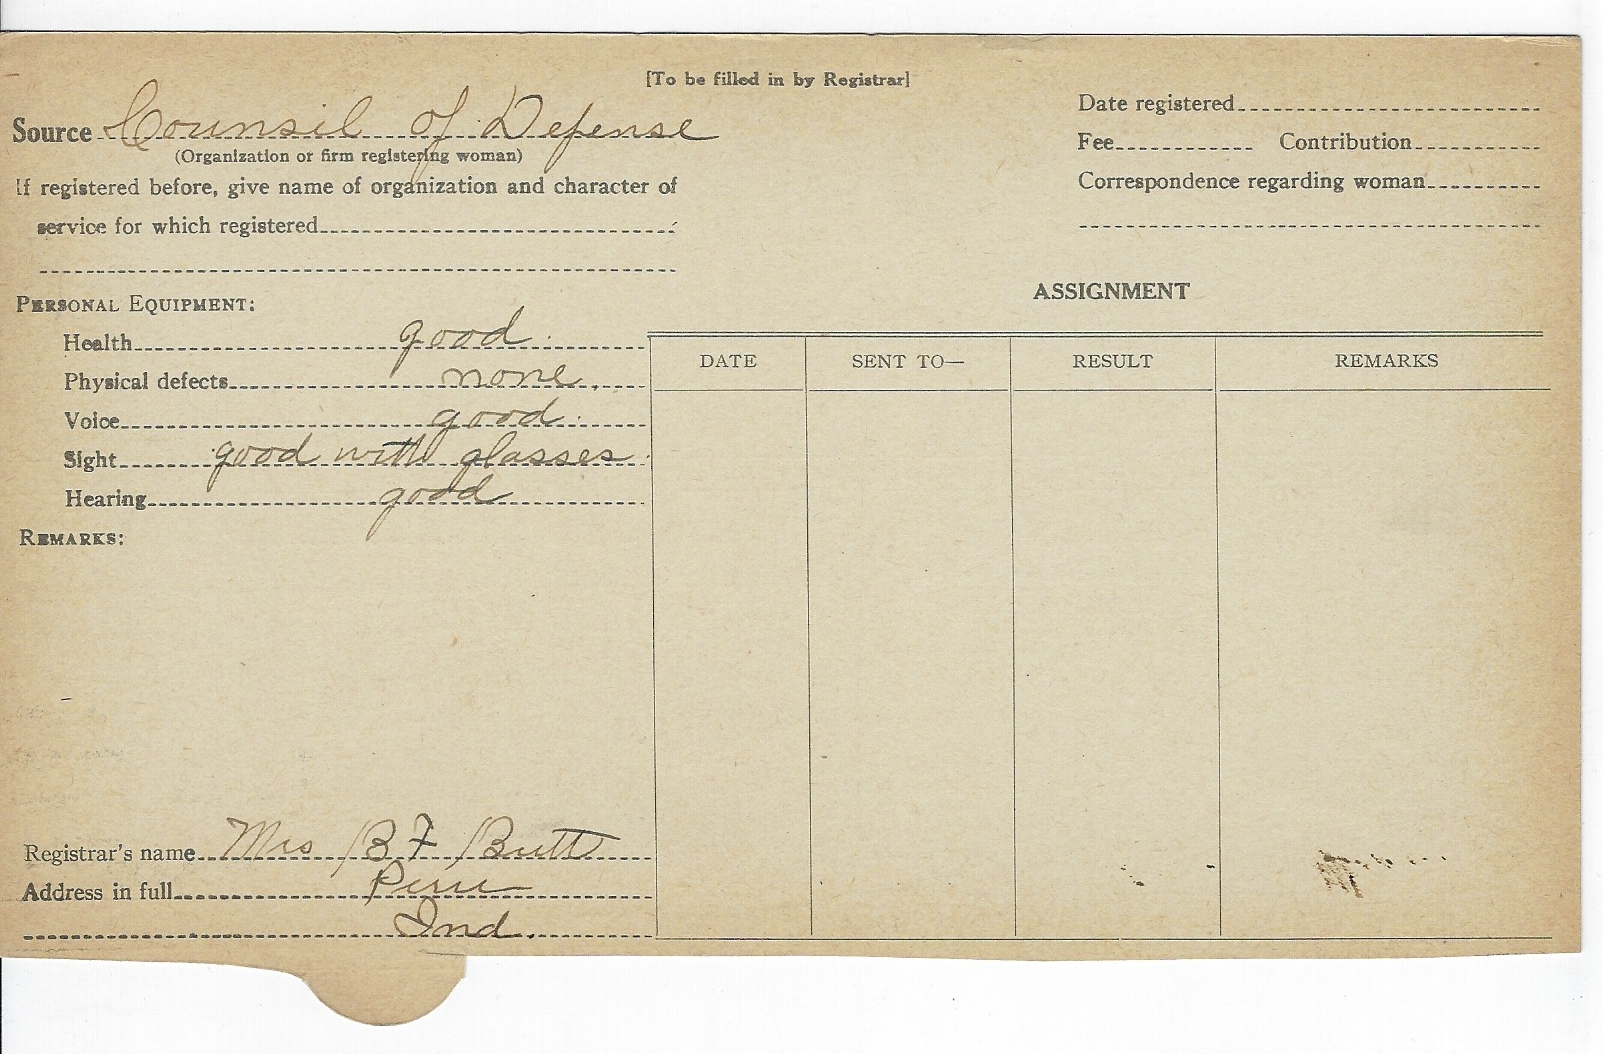 [To be filled in by Registrar]
Source Counsil of Defense
(Organization or firm registering woman)
If registered before, give name of organization and character of
service for which registered
Date registered
Fee Contribution
Correspondence regarding woman
PERSONAL EQUIPMENT:
Health good
Physical defects none
Voice good
Sight good with glasses
Hearing good
REMARKS:
Registrar's name Mrs B F Butt
Address in full Peru
Ind.
ASSIGNMENT
DATE SENT TO— RESULT REMARKS